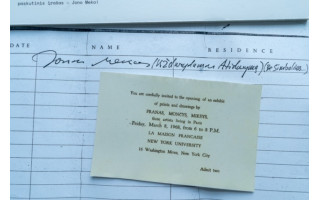 paskutinis įrašas – Jono Meko!
DATE NAME RESIDENCE
Jonas Mekas
You are cordially invited to the opening of an exhibit
of prints and drawings by
PRANAS, MONCYS, MIKSYS,
three artists living in Paris
Friday, March 8, 1968, from 6 to 8 P.M.
LA MAISON FRANCAISE
NEW YORK UNIVERSITY
16 Washington Mews, New York City
Admit two